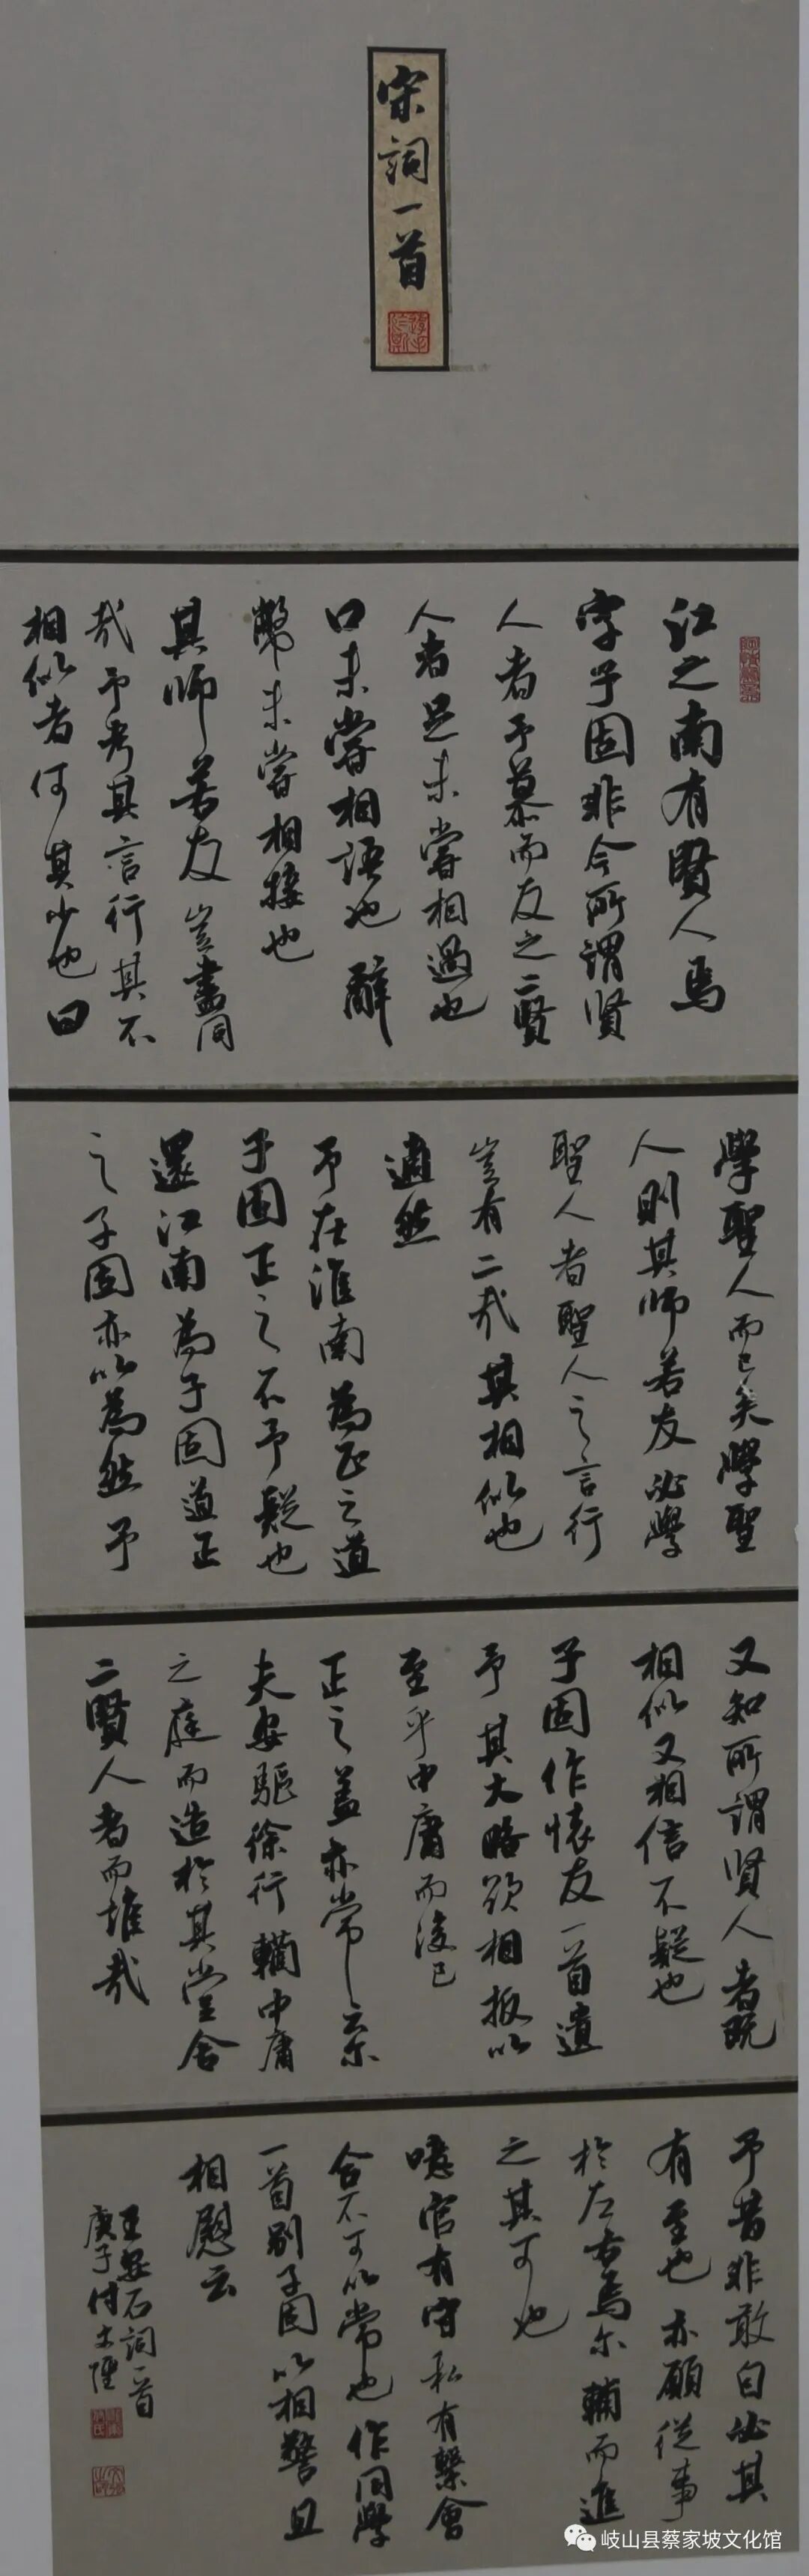 宋詞一首
江之南有賢人焉
字子固非今所謂贤
人者予慕而友之二賢
人者足未嘗相過也
口未嘗相語也辭
幣未嘗相接也
其師若友豈盡同
哉予考其言行其不
相似者何其少也曰
學聖人而已矣學聖
人則其师若友必學
聖人者聖人之言行
豈有二哉其相似也
適然
予在淮南為正之道
子固正之不予疑也
還江南為子固道正
之子固亦以為然予
又知所謂贤人者既
相似又相信不疑也
子固作懐友一首遺
予其大略欲相扳以
至乎中庸而後已
正之蓋亦常云尔
夫安驅徐行轥中庸
之庭而造於其堂舍
二賢人者而誰哉
予昔非敢自必其
有至也亦願從事
於左右焉尔輔而進
之其可也
噫官有守私有繫會
合不可以常也作同學
一首别子固以相警且
相慰云
王安石詞一首
庚子付文陸
岐山县蔡家坡文化馆